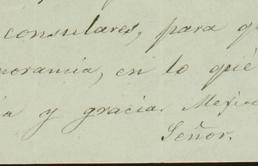 consulares, para q
norancia, en lo qué
ia y gracia. Mexico
Señor.